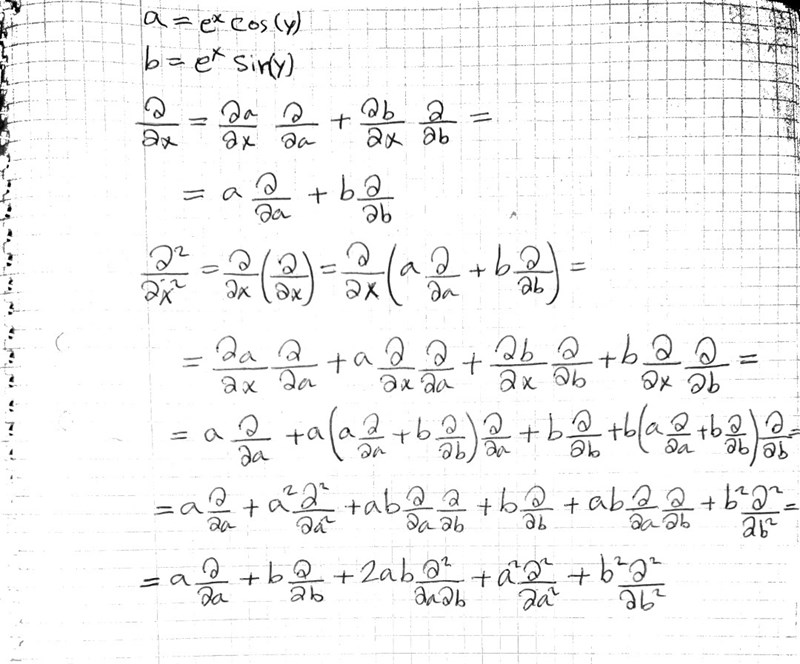 a = eˣ cos(y)
b = eˣ sin(y)
∂/∂x = ∂a/∂x ∂/∂a + ∂b/∂x ∂/∂b =
= a ∂/∂a + b ∂/∂b
∂²/∂x² = ∂/∂x (∂/∂x) = ∂/∂x (a ∂/∂a + b ∂/∂b) =
= ∂a/∂x ∂/∂a + a ∂/∂x ∂/∂a + ∂b/∂x ∂/∂b + b ∂/∂x ∂/∂b =
= a ∂/∂a + a(a ∂/∂a + b ∂/∂b) ∂/∂a + b ∂/∂b + b(a ∂/∂a + b ∂/∂b) ∂/∂b =
= a ∂/∂a + a² ∂²/∂a² + ab ∂/∂a ∂/∂b + b ∂/∂b + ab ∂/∂a ∂/∂b + b² ∂²/∂b² =
= a ∂/∂a + b ∂/∂b + 2ab ∂²/∂a∂b + a² ∂²/∂a² + b² ∂²/∂b²